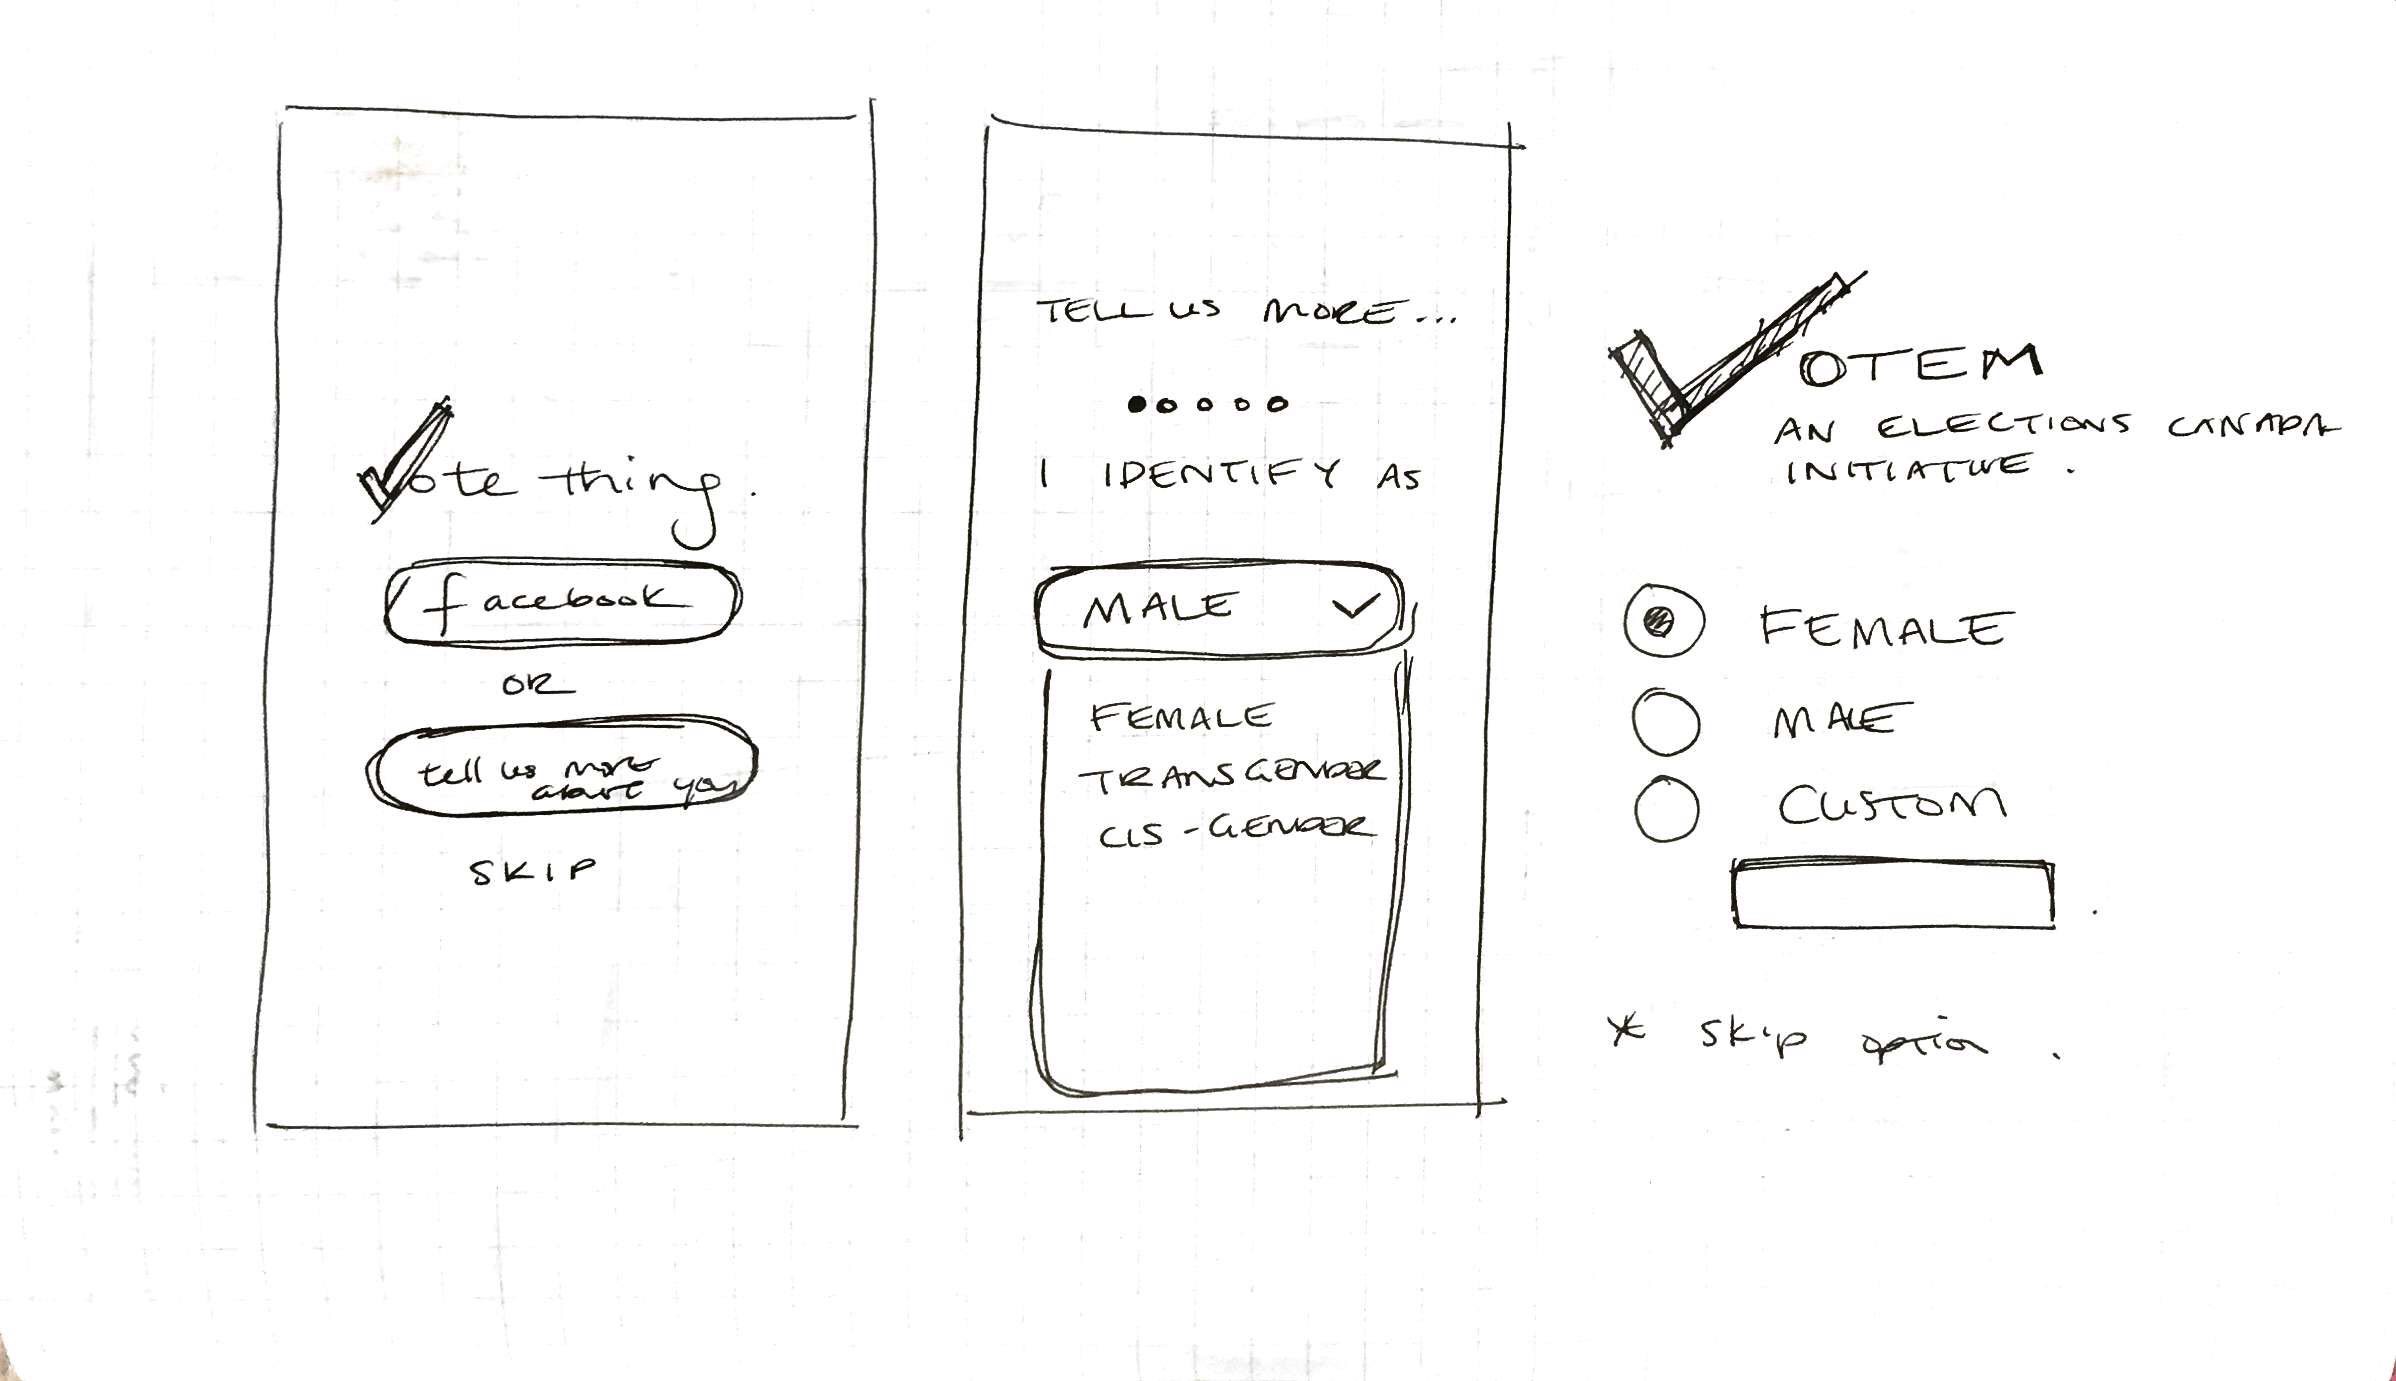 Vote thing.
facebook
OR
tell us more
about you
SKIP
TELL US MORE...
I IDENTIFY AS
MALE
FEMALE
TRANSGENDER
CIS-GENDER
VOTEM
AN ELECTIONS CANADA
INITIATIVE.
FEMALE
MALE
CUSTOM
* skip option.